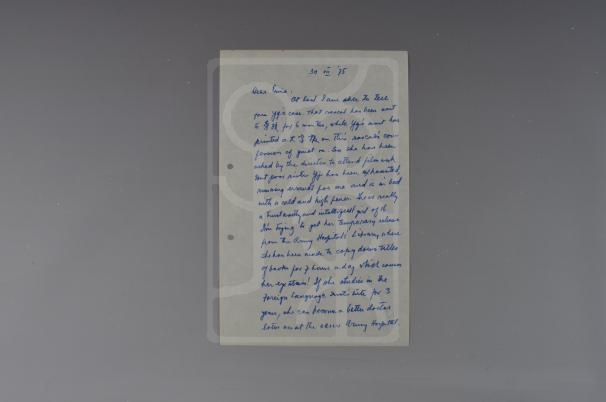 30 VII '75
Dear Erica,
At last I am able to tell
you Yg's case. That rascal has been sent
to for 6 months, while Yg's aunt has
printed a t. on this rascal's con-
fession of guilt on. So she has been
asked by the director to attend film work
but poor sister Yg has been exhausted,
running errands for me and is in bed
with a cold and high fever. She is really
a trustworthy and intelligent girl of 16
I'm trying to get her temporary release
from the Army Hospital's Library where
she has been made to copy down titles
of books for 7 hours a day which
her eyestrain! If she studies in the
Foreign Language Institute for 3
years, she can become a better doctor
later on at the same Army Hospital.